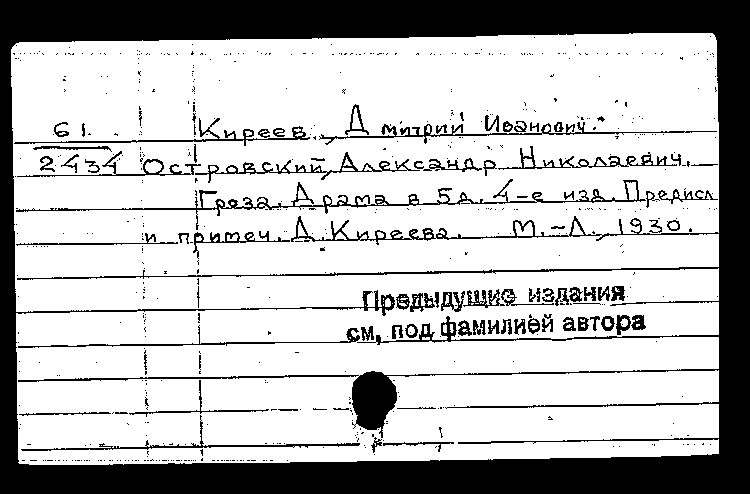 61. Киреев, Дмитрий Иванович.
2434 Островский, Александр Николаевич.
Гроза. Драма в 5д. 4-е изд. Предисл
и примеч. Д. Киреева. М.-Л., 1930.
Предыдущие издания
см, под фамилией автора